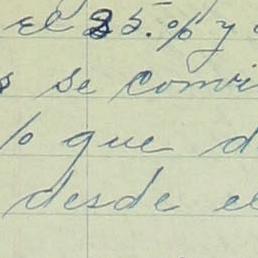 el 25.% y
se convi
lo que d
desde el